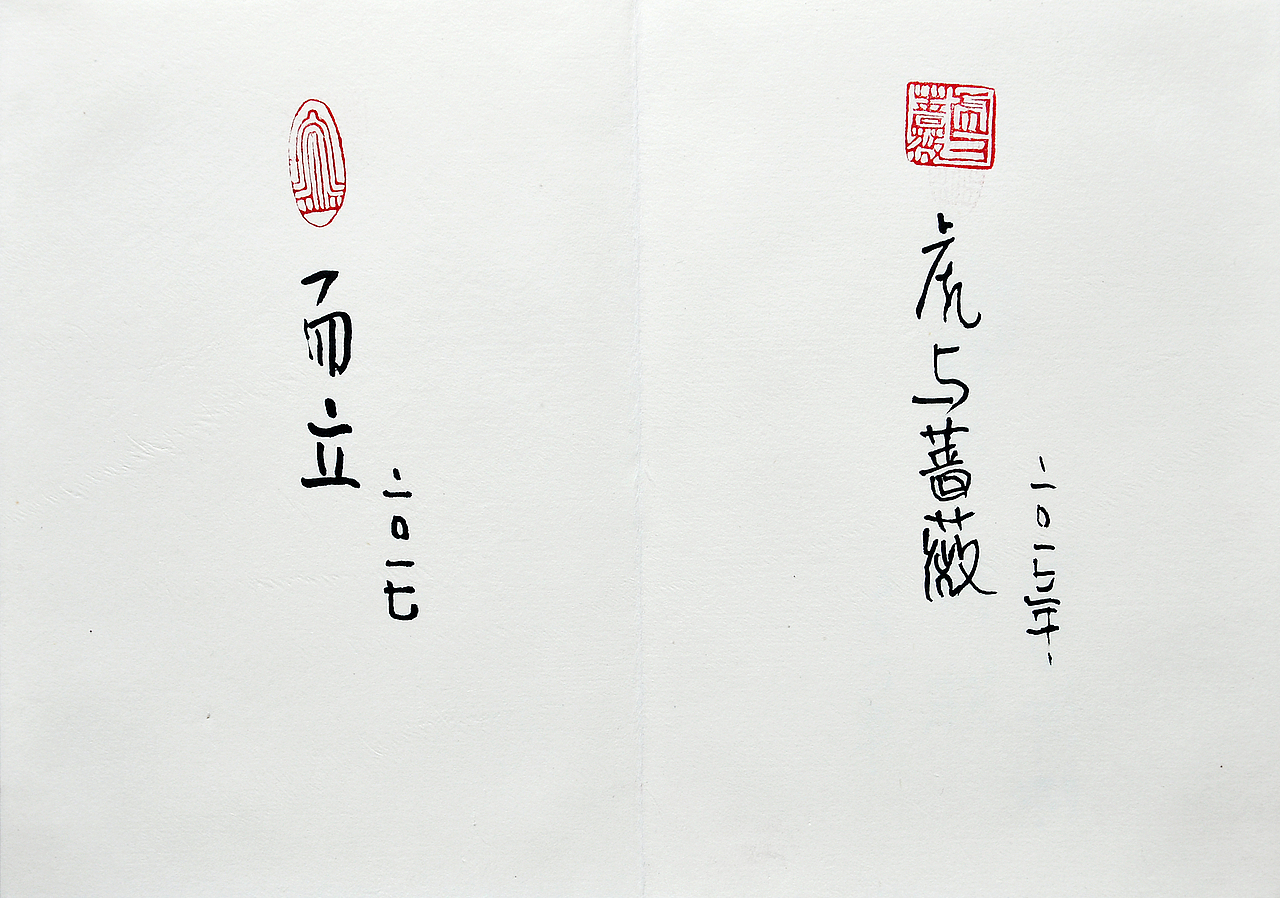 而立
二〇一七
虎与蔷薇
二〇一七年